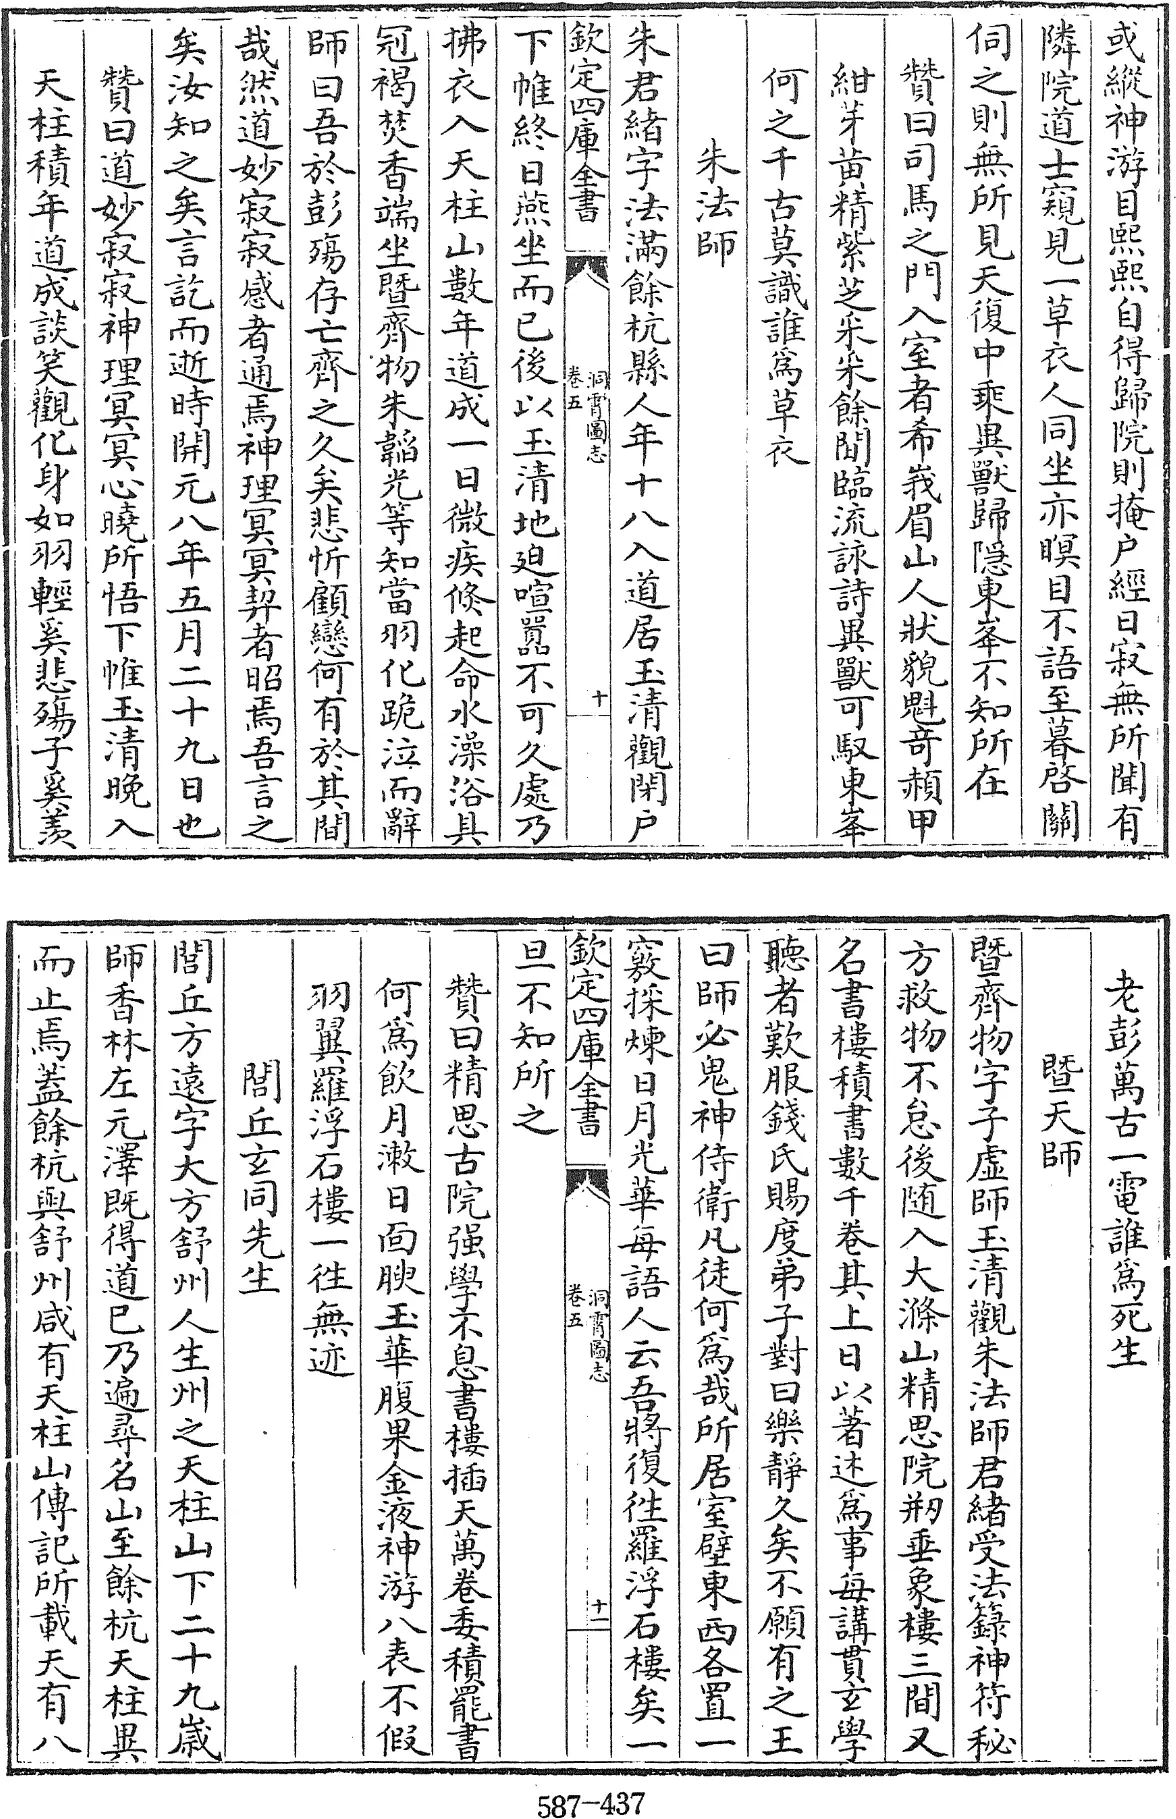 或縱神游目熙熙自得歸院則掩户經日寂無所聞有
隣院道士窺見一草衣人同坐亦瞑目不語至暮啓關
伺之則無所見天復中乘異獸歸隱東峯不知所在
贊曰司馬之門入室者希峩眉山人狀貌魁奇頳甲
紺芽黄精紫芝采采餘閒臨流詠詩異獸可馭東峯
何之千古莫識誰為草衣
朱法師
朱君緒字法滿餘杭縣人年十八入道居玉清觀閉户
欽定四庫全書
洞霄圖志
卷五
十
下帷終日燕坐而已後以玉清地廹喧囂不可久處乃
拂衣入天柱山數年道成一日微疾倐起命水澡浴具
冠褐焚香端坐暨齊物朱韜光等知當羽化跪泣而辭
師曰吾於彭殤存亡齊之久矣悲忻顧戀何有於其間
哉然道妙寂寂感者通焉神理冥冥契者昭焉吾言之
矣汝知之矣言訖而逝時開元八年五月二十九日也
贊曰道妙寂寂神理冥冥心曉所悟下帷玉清晚入
天柱積年道成談笑觀化身如羽輕奚悲殤子奚羨
老彭萬古一電誰為死生
暨天師
暨齊物字子虚師玉清觀朱法師君緒受法籙神符秘
方救物不怠後随入大滌山精思院剏垂象樓三間又
名書樓積書數千卷其上日以著述為事每講貫玄學
聽者歎服錢氏賜度弟子對曰樂靜久矣不願有之王
曰師必鬼神侍衛凡徒何為哉所居室壁東西各置一
竅採煉日月光華每語人云吾將復徃羅浮石樓矣一
欽定四庫全書
洞霄圖志
卷五
十一
旦不知所之
贊曰精思古院强學不息書樓插天萬卷委積罷書
何為飲月潄日面腴玉華腹果金液神游八表不假
羽翼羅浮石樓一徃無迹
閭丘玄同先生
閭丘方遠字大方舒州人生州之天柱山下二十九歲
師香林左元澤既得道已乃遍尋名山至餘杭天柱異
而止焉蓋餘杭與舒州咸有天柱山傳記所載天有八
587-437